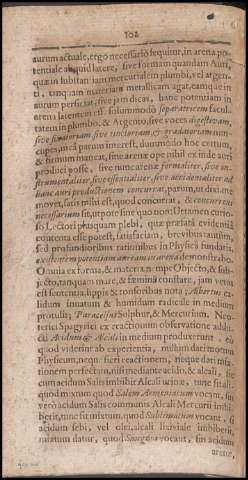 102
aurum actuale, ergo necessariò sequitur, in arena po-
tentiale aliquid latere, sive formam quandam Auri,
quæ in substantiam mercurialem plumbi, vel argen-
ti, tanquam materiam metallicam agat, eamque in
aurum perficiat, sive jam dicas, hanc potentiam in
arena latentem esse solummodo separatricem facul-
tatem in plumbo, & Argento, sive voces digestivam,
sive fixatoriam sive tinctoriam, & gradatoriam nun-
cupes, meâ parum interest, dummodo hoc certum,
& firmum maneat, sine arenæ ope nihil ex inde auri
produci posse, sive nunc arenæ formaliter, sive in-
strumentaliter, sive essentialiter, sive accidentaliter ad
hanc auri productionem concurrat, parum, ut dixi, me
movet, satis mihi est, quod concurrat, & concurrere
necessarium sit, utpote sine quo non: Ut tamen curio-
so Lectori plusquam plebi, quæ præstitâ evidentiâ
contenta esse potest, satisfaciam, brevibus autem,
sed profundioribus rationibus in Physicâ fundatis,
existentem potentiam auream in arena demonstrabo.
Omnia ex forma, & materia, nempe Objecto, & sub-
jecto, tanquam mare, & fœmina constare, jam vetus
est sententia, lippis, & tonsoribus nota;
lidum innatum & humidum radicale in medium
protulit; Paracelsus Sulphur, & Mercurium. Neo-
terici Spagyrici ex reactionum observatione addu-
cti Acidum & Alcali in medium produxerunt
quod viderint ab experientia, nullum dari motum
Physicum, neque fieri reactionem, neque dari mix-
tionem perfectam, nisi mediante acido, & alcali,
cum acidum Salis imbibit Alcali urinæ, tunc fit ali-
quod mixtum quod Salem Armeniacum vocant, sin
verò acidum Salis communis Alcali Mercurii imbi-
berit, tunc mixtum, quod Sublimatum vocant, si
acidum sebi, vel olei, alcali lixiviale imbiberit,
mixtum datur, quod Smegma vocant, sin acidum